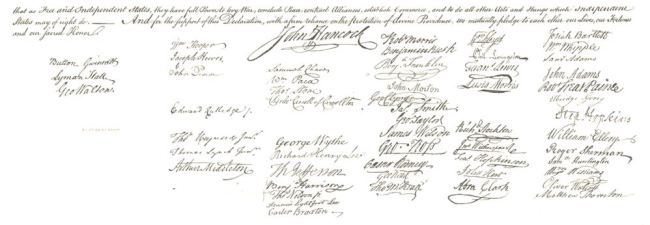 that as Free and Independent States, they have full Power to levy War, conclude Peace, contract Alliances, establish Commerce, and to do all other Acts and Things which Independent
States may of right do. — And for the support of this Declaration, with a firm reliance on the Protection of divine Providence, we mutually pledge to each other our Lives, our Fortunes
and our sacred Honor.
John Hancock
Button Gwinnett
Lyman Hall
Geo Walton.
Wm Hooper
Joseph Hewes,
John Penn
Edward Rutledge.
Thos Heyward Junr.
Thomas Lynch Junr.
Arthur Middleton
Samuel Chase
Wm Paca
Thos Stone
Charles Carroll of Carrollton
George Wythe
Richard Henry Lee
Th Jefferson
Benj Harrison
Thos Nelson jr.
Francis Lightfoot Lee
Carter Braxton
Robt Morris
Benjamin Rush
Benj Franklin
John Morton
Geo Clymer
Jas Smith
Geo Taylor
James Wilson
Geo Ross
Caesar Rodney
Geo Read
Tho M:Kean
Wm Floyd
Phil Livingston
Frans Lewis
Lewis Morris
Richd Stockton
Jno Witherspoon
Fras Hopkinson
John Hart
Abra Clark
Josiah Bartlett
Wm Whipple
Saml Adams
John Adams
Robt Treat Paine
Elbridge Gerry
Step Hopkins
William Ellery
Roger Sherman
Saml Huntington
Wm Williams
Oliver Wolcott
Matthew Thornton